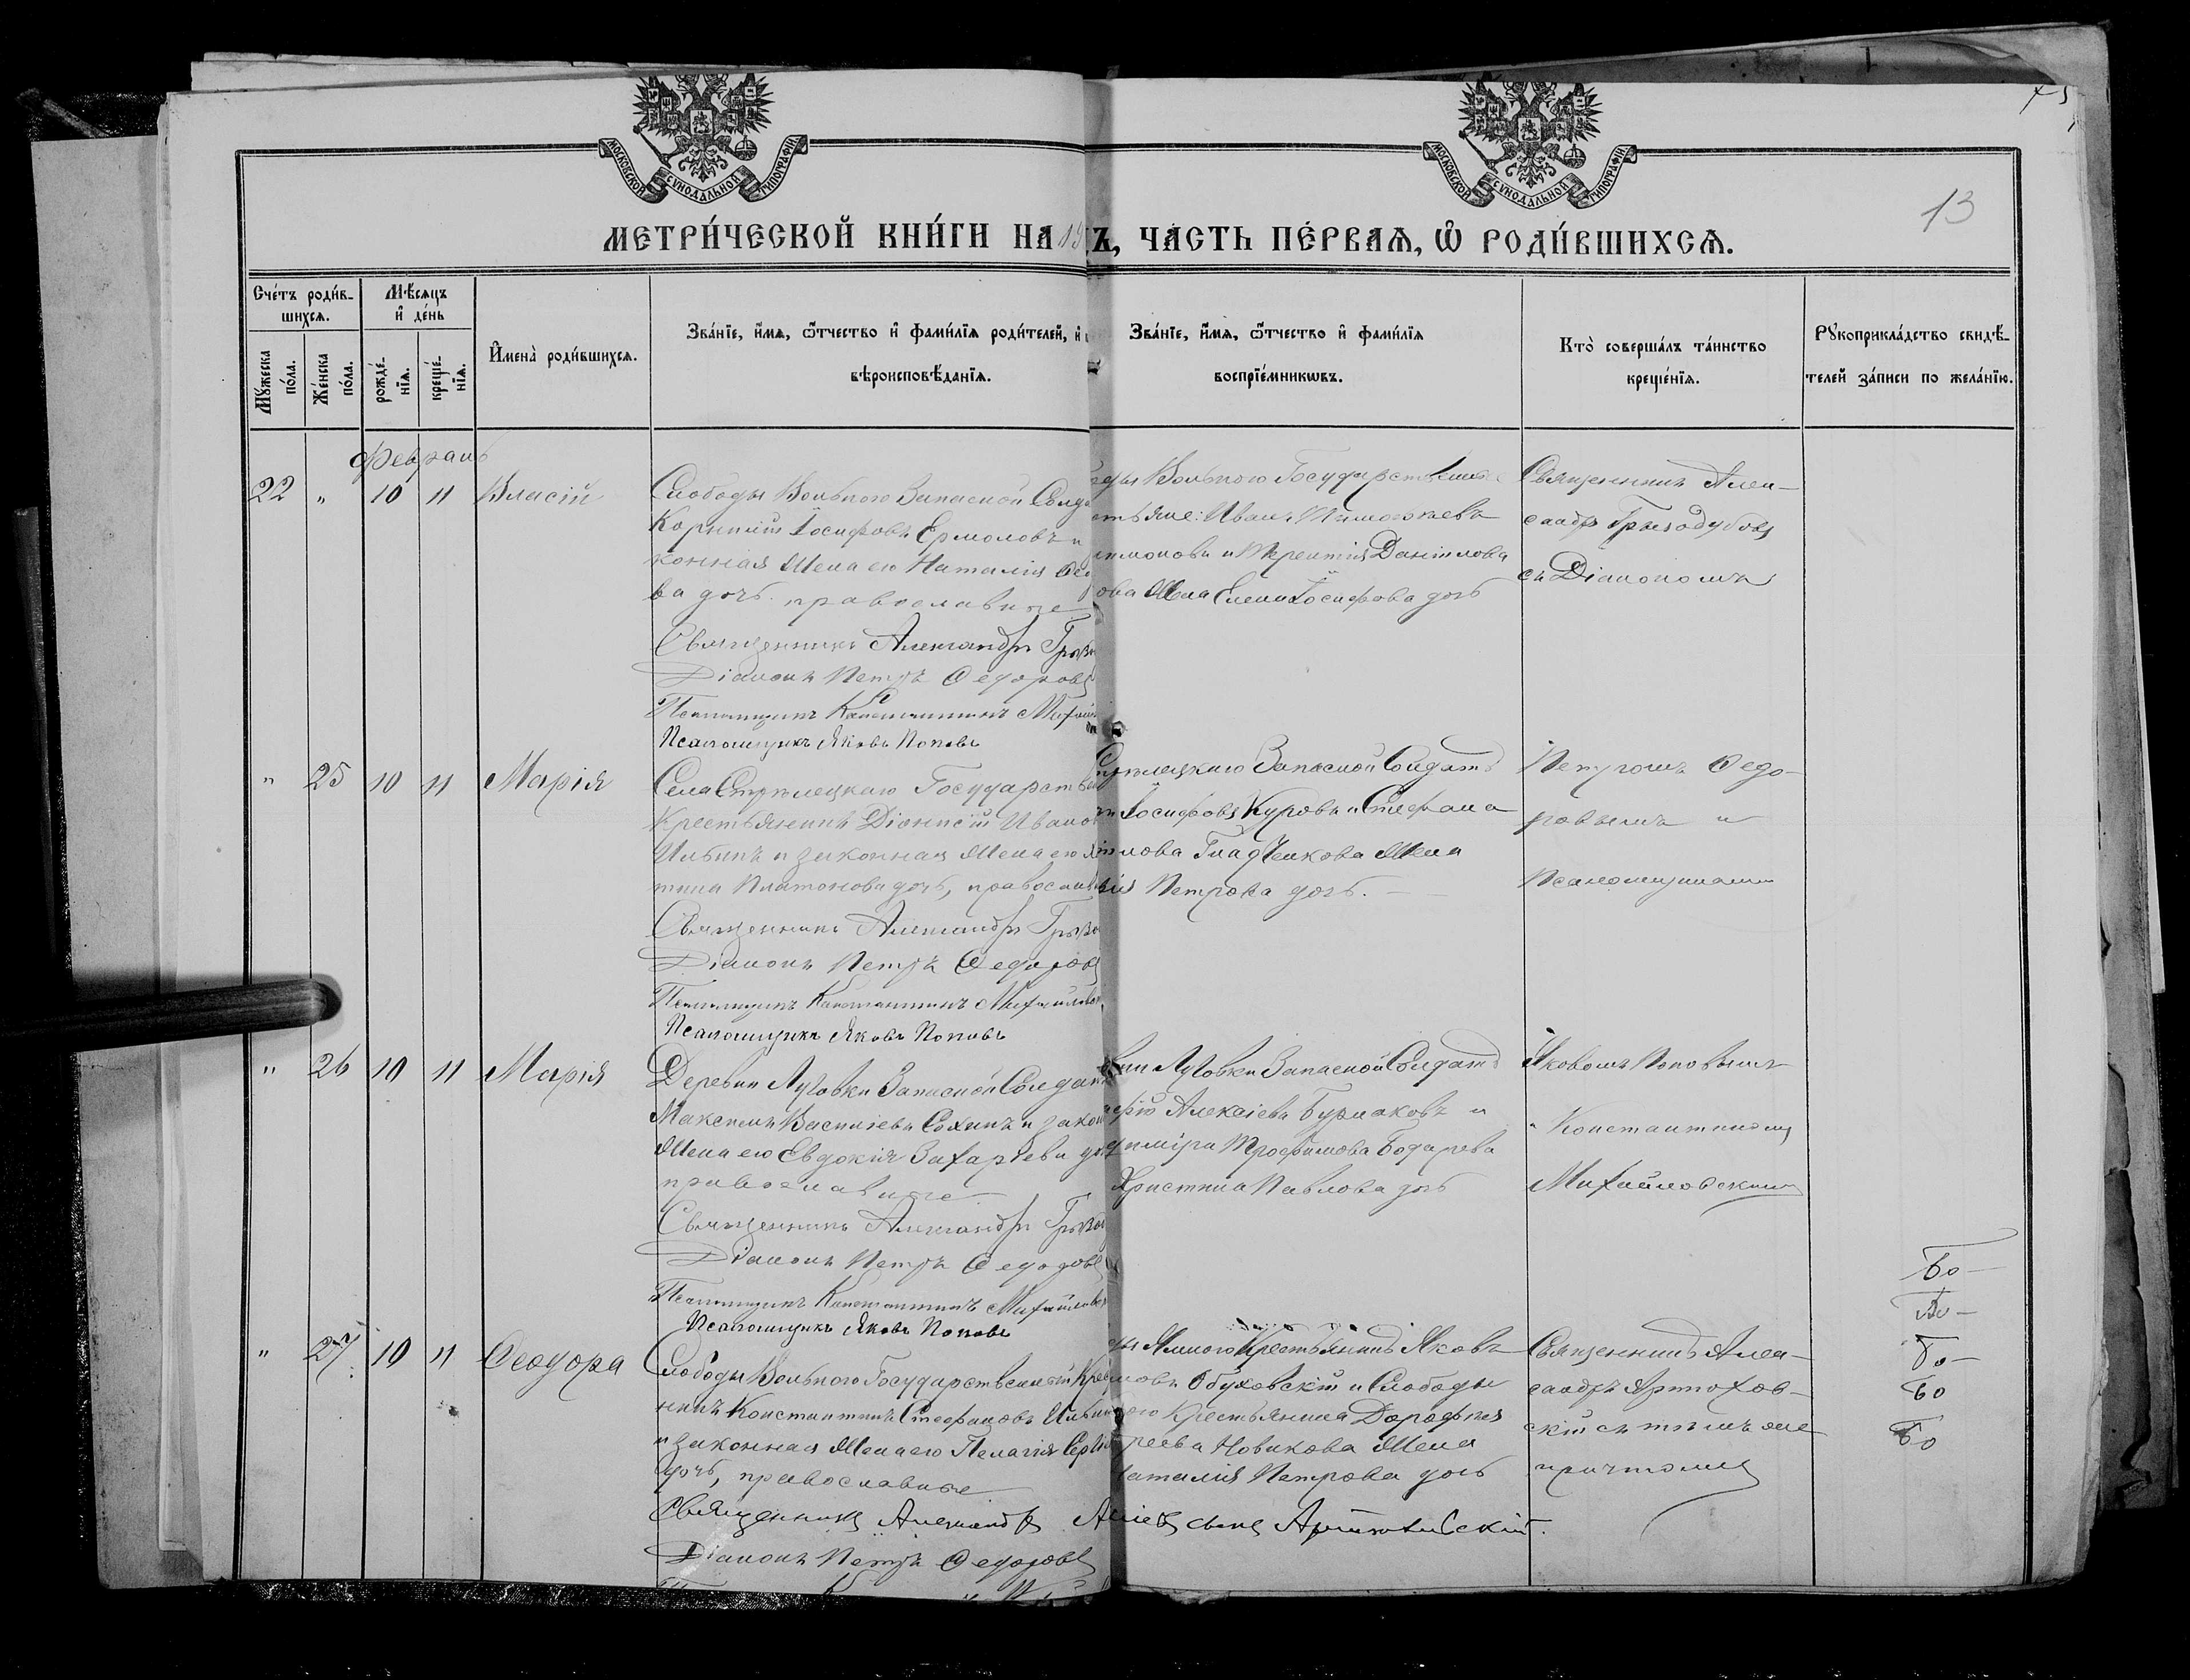 МОСКОВСКОЙ СѴНОДАЛЬНОЙ ТИПОГРАФІИ
МОСКОВСКОЙ СѴНОДАЛЬНОЙ ТИПОГРАФІИ
13
МЕТРИ́ЧЕСКОЙ КНИ́ГИ НА 19
Ъ, ЧАСТЬ ПЕ́РВАѦ, Ѽ РОДИ́ВШИХСѦ.
Сче́тъ роди́в-
шихсѧ.
Мѣ́сѧцъ
и҆ де́нь
Мꙋ́жеска
по́ла.
Же́нска
по́ла.
рожде́-
нїѧ.
креще́-
нїѧ.
И҆мена̀ роди́вшихсѧ.
Зва́нїе, и҆́мѧ, ѻ҆́тчество и҆ фами́лїѧ роди́телей, и҆
вѣроисповѣ́данїѧ.
Зва́нїе, и҆́мѧ, ѻ҆́тчество и҆ фами́лїѧ
воспрїе́мникѡвъ.
Кто̀ соверша́лъ та́инство
креще́нїѧ.
Рꙋкоприкла́дство свидѣ́-
телей за́писи по жела́нїю.
Февраль
22 " 10 11 Власій
Слободы Вольного Запасной Солда
Корнилій Іосифовъ Ермоловъ и
конная жена его Наталія Ѳео
ва дочь. православные
Священникъ Александръ Грызо
Діаконъ Петръ Ѳедоровъ
Псаломщикъ Константинъ Михайл
Псаломщикъ Яковъ Поповъ
Вольного Государственные
Иванъ Тимоѳеевъ
и Терентія Данілова
ова жена Елена Іосифова дочь
Священникъ Алек-
сандръ Грызодубовъ
съ Діакономъ
" 25 10 11 Марія
Села Стрѣлецкаго Государствен
Крестьянинъ Діонисій Ивано
Ильинъ и законная жена его
тина Платонова дочь, православ
Священникъ Александръ Грызо
Діаконъ Петръ Ѳедоровъ
Псаломщикъ Константинъ Михайлов
Псаломщикъ Яковъ Поповъ
Стрѣлецкаго Запасной Солдатъ
Іосифовъ Куровъ и Стефана
лова Гладченкова жена
Петрова дочь.
Петромъ Ѳедо-
ровымъ и
Псаломщиками
" 26 10 11 Марія
Деревни Луговки Запасной Солдат
Максимъ Васильевъ Сохинъ и закон
жена его Евдокія Захарьева до
православные
Священникъ Александръ Грызод
Діаконъ Петръ Ѳедоровъ
Псаломщикъ Константинъ Михайлов
Псаломщикъ Яковъ Поповъ
вни Луговки Запасной Солдатъ
Алексіевъ Бурлаковъ и
диміра Трофимова Бодарева
Христина Павлова дочь
Яковомъ Поповымъ
и Константиномъ
Михайловскимъ
" 27 10 11 Ѳеодора
Слободы Вольного Государственной Крес
нинъ Константинъ Стефановъ Ильин
и законная жена его Пелагія Серг
дочь, православные
Священникъ Александръ
Діаконъ Петръ Ѳедоровъ
Крестьянинъ Яковъ
новъ Обуховскій и Слободы
ого Крестьянина Дорофея
реева Новикова жена
Наталія Петрова дочь
Артюховскій.
Священникъ Алек-
сандръ Артюхов-
скій съ тѣмъ же
причтомъ
Бо-
Во-
Бо-
Бо
Бо